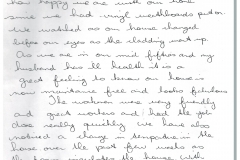 how happy we are with our home
since we had vinyl weatherboards put on.
We watched as our house changed
before our eyes as the cladding went up.
As we are in our mid fifties and my
husband has ill health it is a
great feeling to know our house is
now maintenance free and looks fabulous
The workmen were very friendly
and great workers and had the job
done really quickly. We have also
noticed a change in temperature in the
house over the past few weeks as
the house insulates the house with